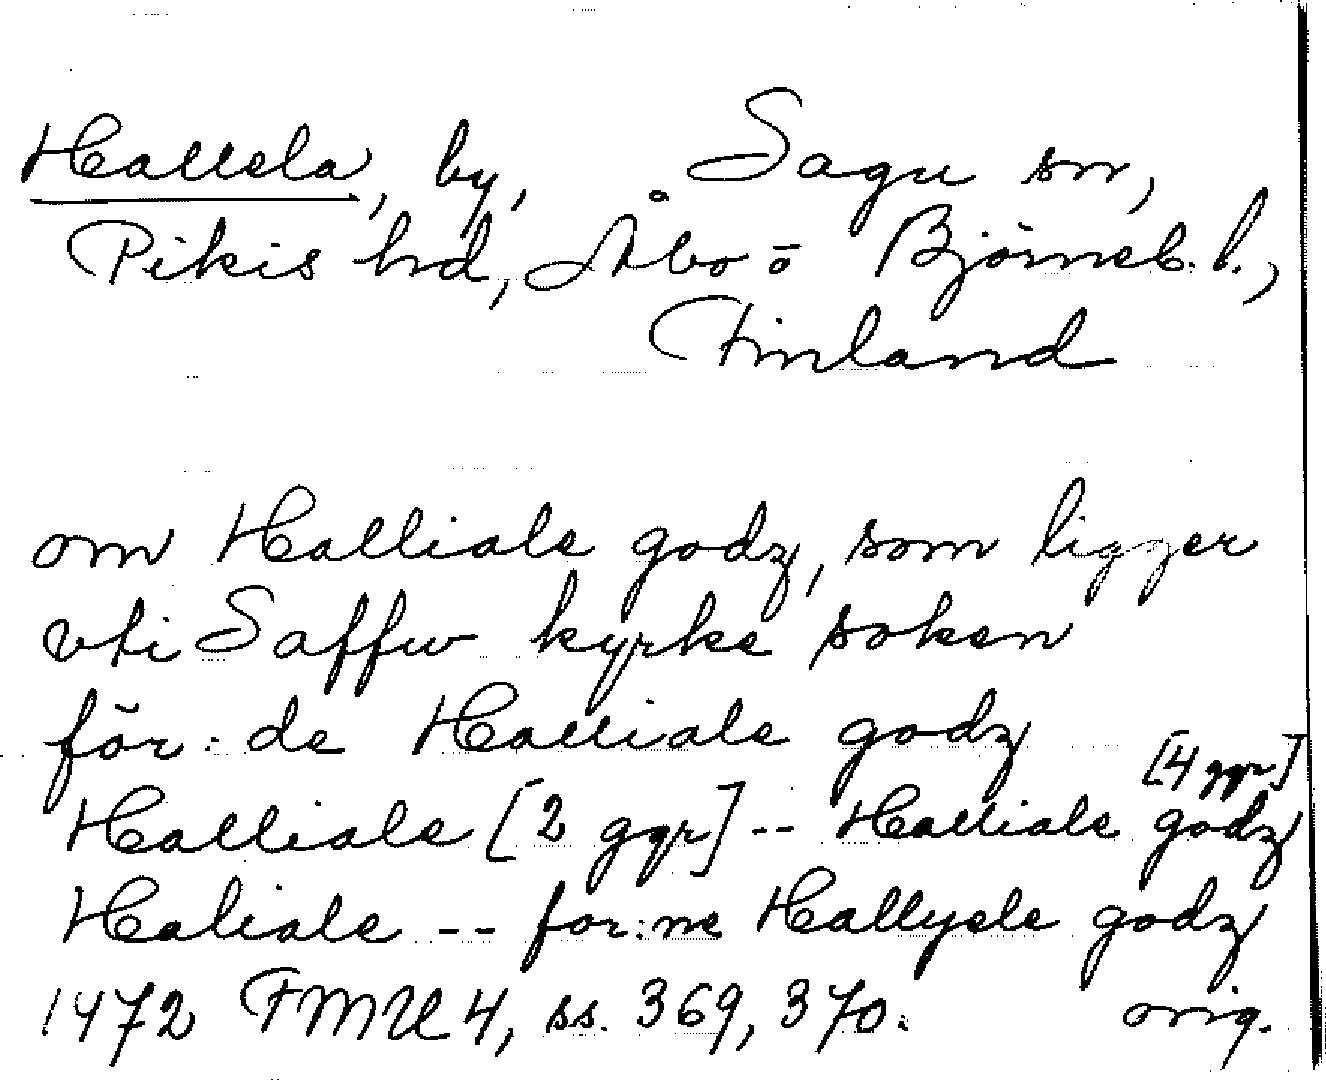 Hallela, by, Sagu sn,
Pikis hd, Åbo o Björneb. l.,
Finland
om Halliale godz, som ligger
vti Saffw kyrke soken
för:de Halliale godz
Halliale [2 ggr] -- Halliale godz [4 ggr]
Haliale -- for:ne Hallyele godz
1472 FMU 4, ss. 369, 370. orig.